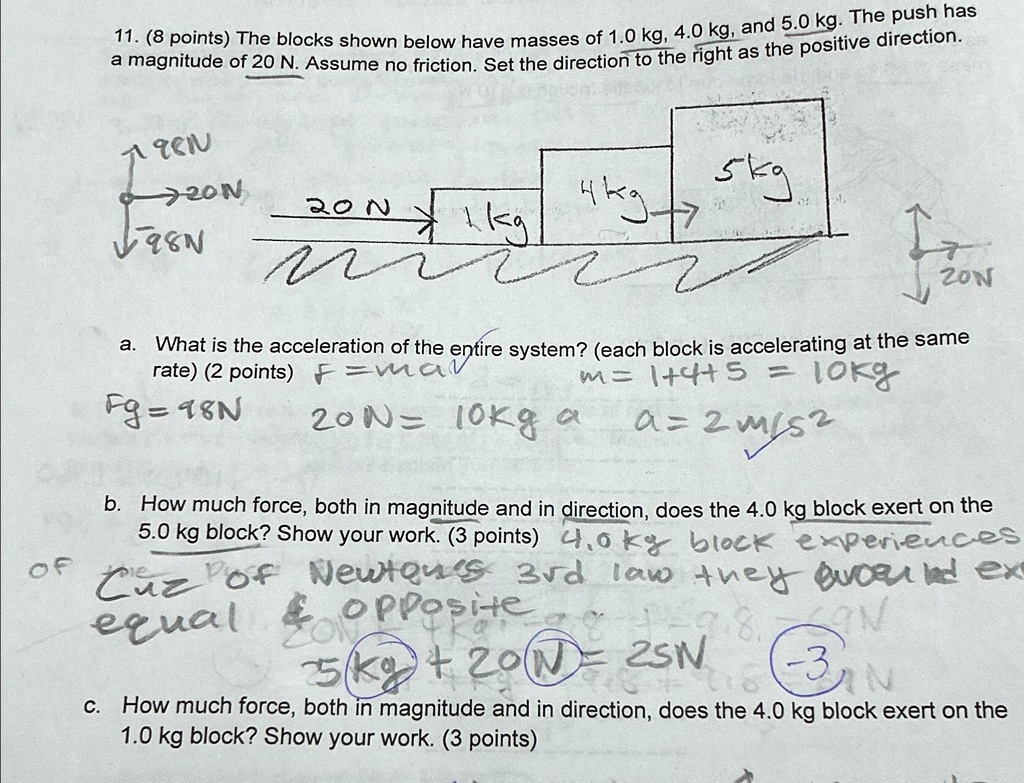 11. (8 points) The blocks shown below have masses of 1.0 kg, 4.0 kg, and 5.0 kg. The push has
a magnitude of 20 N. Assume no friction. Set the direction to the right as the positive direction.
98N
20N
-98N
20 N
1kg
4kg
5kg
20N
a. What is the acceleration of the entire system? (each block is accelerating at the same
rate) (2 points) F = ma m = 1+4+5 = 10kg
Fg = 98N 20N = 10kg a a = 2 m/s2
b. How much force, both in magnitude and in direction, does the 4.0 kg block exert on the
5.0 kg block? Show your work. (3 points) 4.0 kg block experiences
of Cuz of Newtons 3rd law they
equal & opposite
5kg + 20N = 25N -3
c. How much force, both in magnitude and in direction, does the 4.0 kg block exert on the
1.0 kg block? Show your work. (3 points)